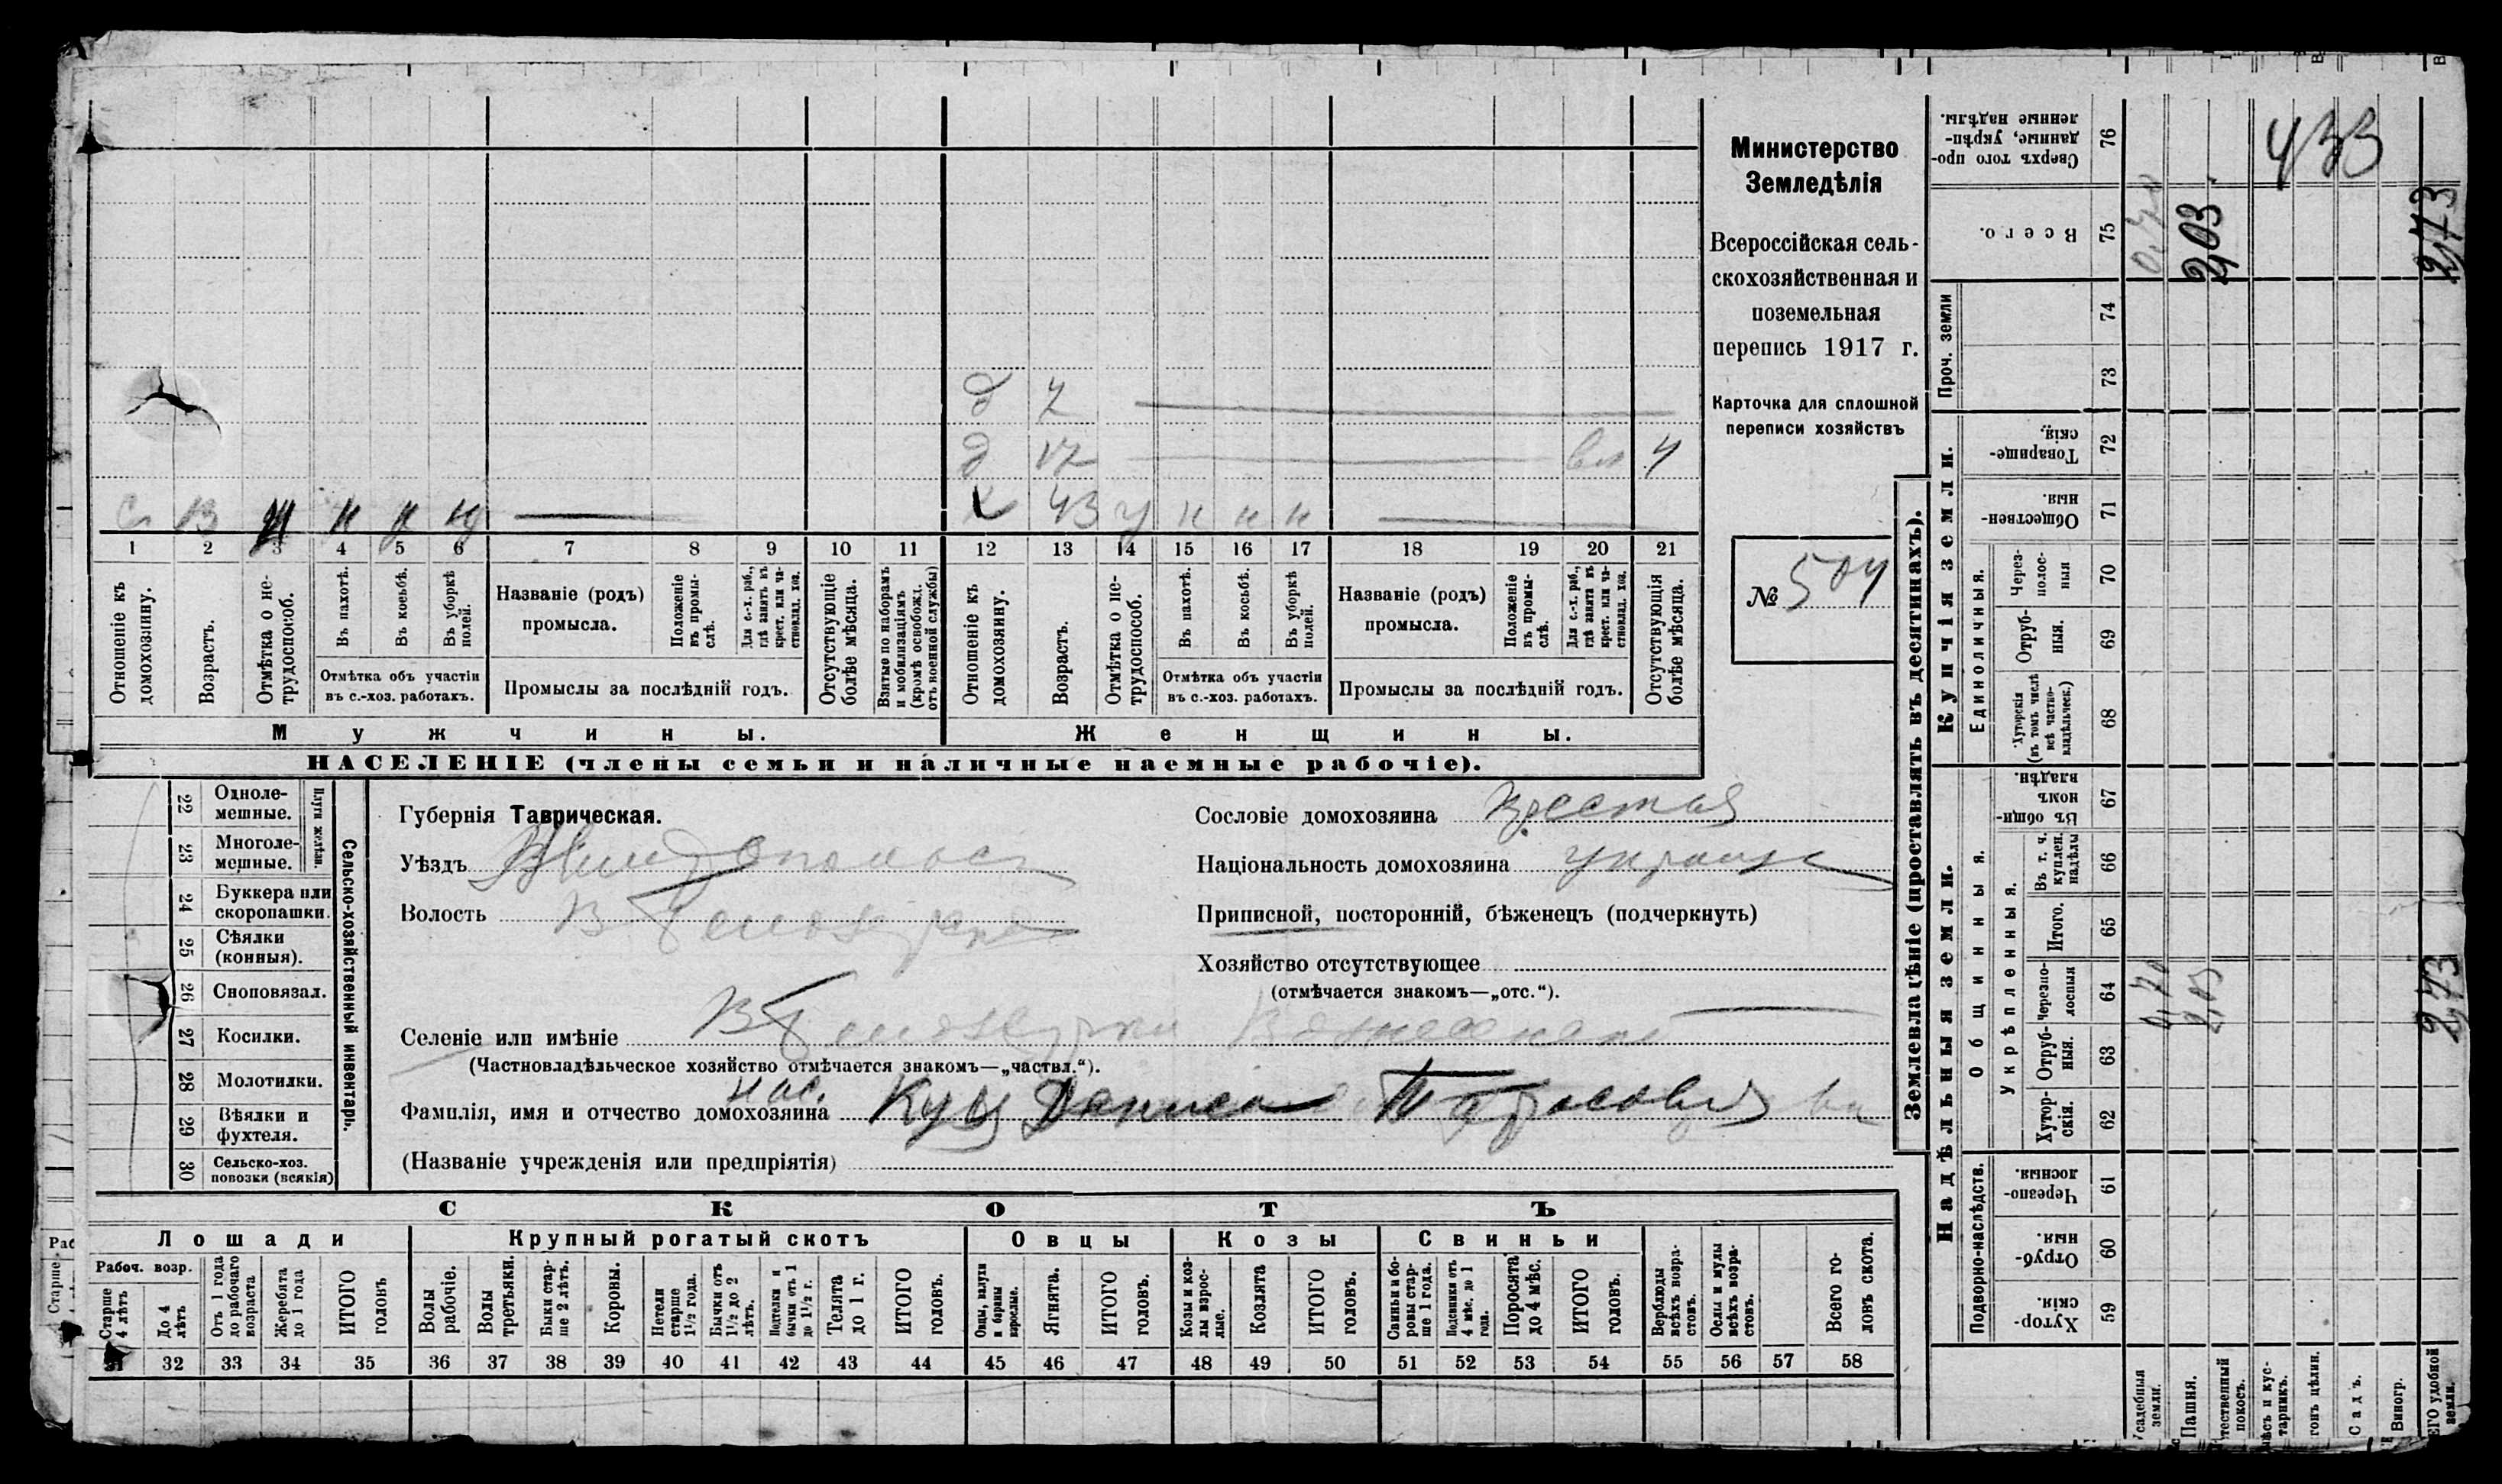 Министерство
Земледѣлія
Всероссійская сель-
скохозяйственная и
поземельная
перепись 1917 г.
Карточка для сплошной
переписи хозяйствъ
№ 504
д 7
д 17 4
с 13 н н
х 43 у н н н
1 2 3 4 5 6 7 8 9 10 11 12 13 14 15 16 17 18 19 20 21
Отношеніе къ домохозяину.
Возрастъ.
Отмѣтка о не-трудоспособ.
Въ пахотѣ.
Въ косьбѣ.
Въ уборкѣ полей.
Отмѣтка объ участіи
въ с.-хоз. работахъ.
Названіе (родъ)
промысла.
Положеніе въ промы-слѣ.
Для с.-х. раб., гдѣ занятъ въ крест. или ча-стновлад. хоз.
Промыслы за послѣдній годъ.
Отсутствующіе болѣе мѣсяца.
Взятые по наборамъ и мобилизаціямъ (кромѣ освобожд. отъ военной службы)
Отношеніе къ домохозяину.
Возрастъ.
Отмѣтка о не-трудоспособ.
Въ пахотѣ.
Въ косьбѣ.
Въ уборкѣ полей.
Отмѣтка объ участіи
въ с.-хоз. работахъ.
Названіе (родъ)
промысла.
Положеніе въ промы-слѣ.
Для с.-х. раб., гдѣ занята въ крест. или ча-стновлад. хоз.
Промыслы за послѣдній годъ.
Отсутствующія болѣе мѣсяца.
Мужчины.
Женщины.
НАСЕЛЕНІЕ (члены семьи и наличные наемные рабочіе).
Сельско-хозяйственный инвентарь.
Плуги желѣзн.
22 Однолемешные.
23 Многолемешные.
24 Буккера или скоропашки.
25 Сѣялки (конныя).
26 Сноповязал.
27 Косилки.
28 Молотилки.
29 Вѣялки и фухтеля.
30 Сельско-хоз. повозки (всякія)
Губернія Таврическая.
Уѣздъ
Волость В Бѣлозерка
Сословіе домохозяина
Національность домохозяина украин
Приписной, посторонній, бѣженецъ (подчеркнуть)
Хозяйство отсутствующее
(отмѣчается знакомъ—„отс.“).
Селеніе или имѣніе В Бѣлозерка
(Частновладѣльческое хозяйство отмѣчается знакомъ—„частвл.“).
нас.
Фамилія, имя и отчество домохозяина Куц Дениса Тарасовича
(Названіе учрежденія или предпріятія)
СКОТЪ
Лошади
Крупный рогатый скотъ
Овцы
Козы
Свиньи
Рабоч. возр.
Старше 4 лѣтъ
До 4 лѣтъ
Отъ 1 года до рабочаго возраста
Жеребята до 1 года
ИТОГО головъ
Волы рабочіе.
Волы третьяки.
Быки стар-ше 2 лѣтъ.
Коровы.
Нетели старше 1½ года.
Бычки отъ 1½ до 2 лѣтъ.
Подтелки и бычки отъ 1 до 1½ г.
Телята до 1 г.
ИТОГО головъ.
Овцы, валухи и бараны взрослые.
Ягнята.
ИТОГО головъ.
Козы и коз-лы взрос-лые.
Козлята
ИТОГО головъ.
Свиньи и бо-ровы стар-ше 1 года.
Подсвинки отъ 4 мѣс. до 1 года.
Поросята до 4 мѣс.
ИТОГО головъ.
Верблюды всѣхъ возра-стовъ.
Ослы и мулы всѣхъ возра-стовъ.
Всего го-ловъ скота.
31 32 33 34 35 36 37 38 39 40 41 42 43 44 45 46 47 48 49 50 51 52 53 54 55 56 57 58
Землевладѣніе (проставлять въ десятинахъ).
Надѣльныя земли.
Купчія земли.
Проч. земли
Подворно-наслѣдств.
Общинныя.
Укрѣпленныя.
Единоличныя.
Сверхъ того про-данные, укрѣп-ленные надѣлы. 76
Всего. 75
74
73
Товарище-скія. 72
Обществен-ныя. 71
Через-полос-ныя 70
Отруб-ныя. 69
Хуторскія (въ томъ числѣ всѣ частно-владѣльческ.) 68
Въ общи-номъ владѣн. 67
Въ т. ч. куплен. надѣлы 66
Итого. 65
Черезпо-лосныя 64
Отруб-ныя. 63
Хутор-скія. 62
Черезпо-лосныя. 61
Отруб-ныя. 60
Хутор-скія. 59
Усадебныя земли.
Пашня.
покосъ.
Садъ.
Виногр.
удобной земли.
0,70
2,03
433
2,73
0,70
2,03
2,73